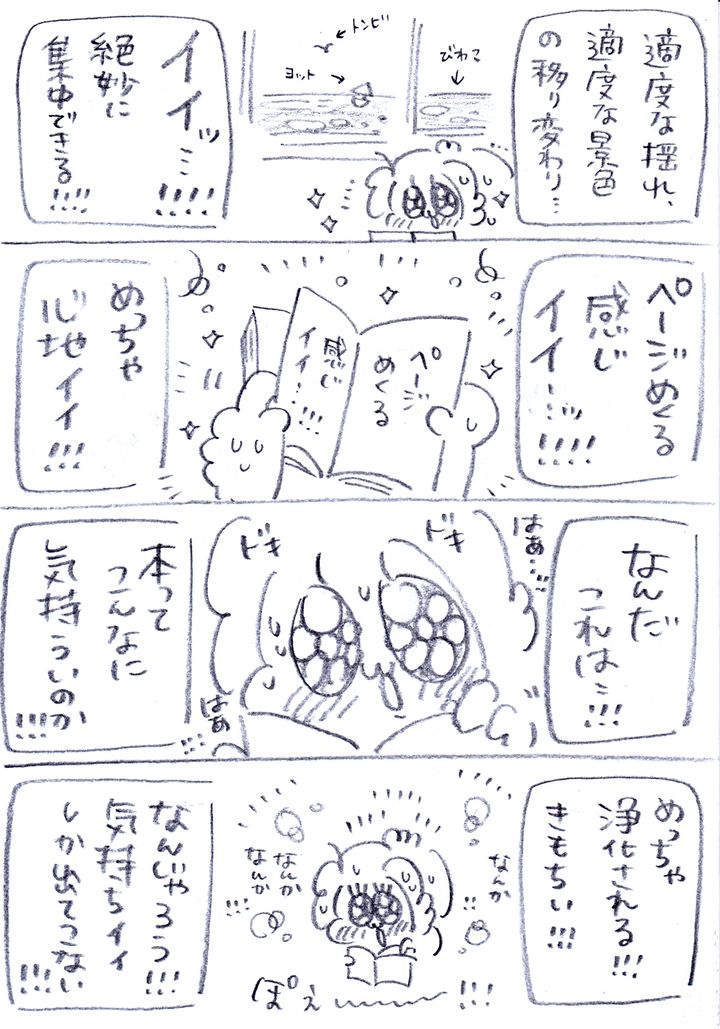 適度な揺れ、
適度な景色
の移り変わり…
びわこ
トンビ
ヨット
イイッ…!!!!
絶妙に
集中できる!!!!
ページめくる
感じ
イイ…ッ!!!!
ページ
めくる
感じ
イイ…!!!
めっちゃ
心地イイ!!!
なんだ
これは…!!!
はぁ…
ドキ
ドキ
はぁ
本って
こんなに
気持ちいいのか
!!!
めっちゃ
浄化される!!!
きもちい!!!
なんか
!!
なんか
なんか
!!!
ぽぇ〜〜〜!!!
なんじゃろう!!!
気持ちイイ
しか出てこない
!!!